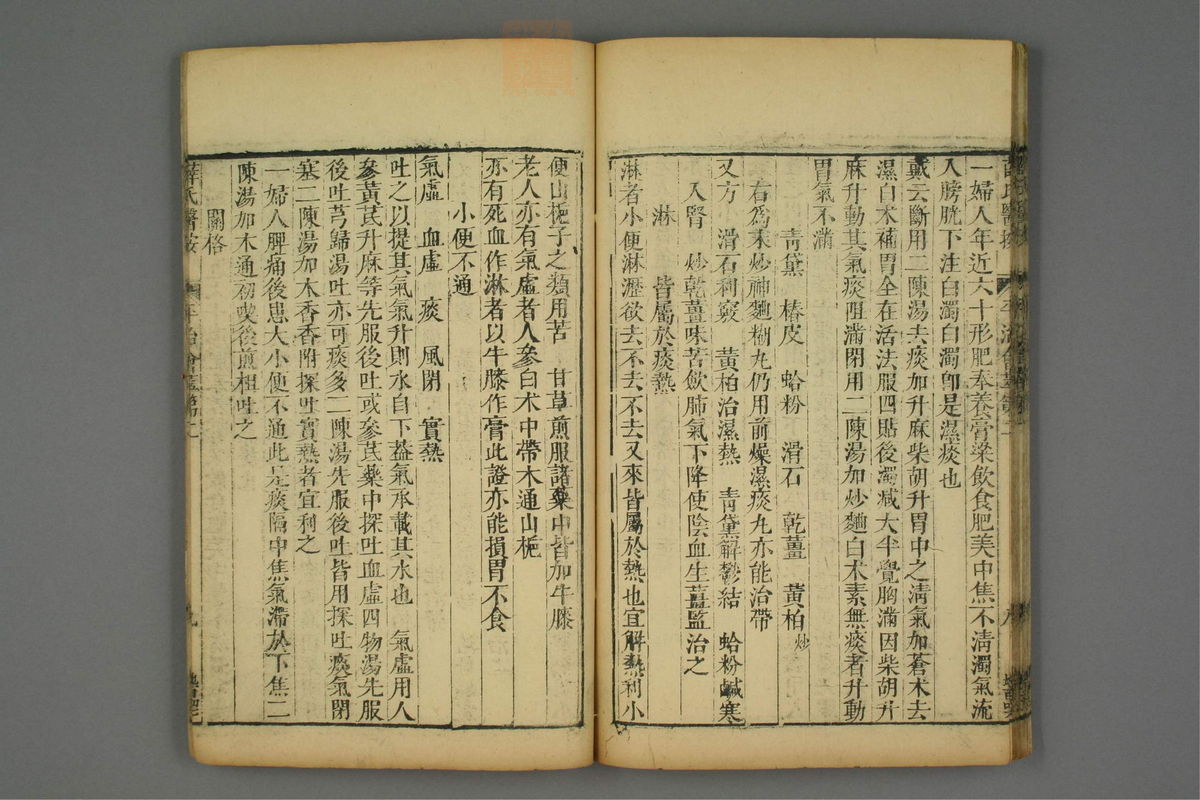 一婦人年近六十形肥奉養膏粱飲食肥美中焦不清濁氣流
入膀胱下注白濁白濁卽是濕痰也
戴云斷用二陳湯去痰加升麻柴胡升胃中之清氣加蒼术去
濕白术補胃全在活法服四貼後濁减大半覺胸滿因柴胡升
麻升動其氣痰阻滿閉用二陳湯加炒麯白术素無痰者升動
胃氣不滿
青黛 椿皮 蛤粉 滑石 乾薑 黃柏炒
右爲末炒神麯糊丸仍用前燥濕痰丸亦能治帶
又方 滑石利竅 黃柏治濕熱 青黛解鬱結 蛤粉鹹寒
入腎 炒乾薑味苦歛肺氣下降使陰血生薑監治之
淋 皆屬於痰熱
淋者小便淋瀝欲去不去不去又來皆屬於熱也宜解熱利小
便山梔子之類用苦 甘草煎服諸藥中皆加牛膝
老人亦有氣虛者人參白术中帶木通山梔
亦有死血作淋者以牛膝作膏此證亦能損胃不食
小便不通
氣虛 血虛 痰 風閉 實熱
吐之以提其氣氣升則水自下葢氣承載其水也 氣虛用人
參黃芪升麻等先服後吐或參芪藥中探吐血虛四物湯先服
後吐芎歸湯吐亦可痰多二陳湯先服後吐皆用探吐痰氣閉
塞二陳湯加木香香附探吐實熱者宜利之
一婦人脾痛後患大小便不通此是痰隔中焦氣滯於下焦二
陳湯加木通初喫後煎柤吐之
關格
薛氏醫按 平治會萃第二 九